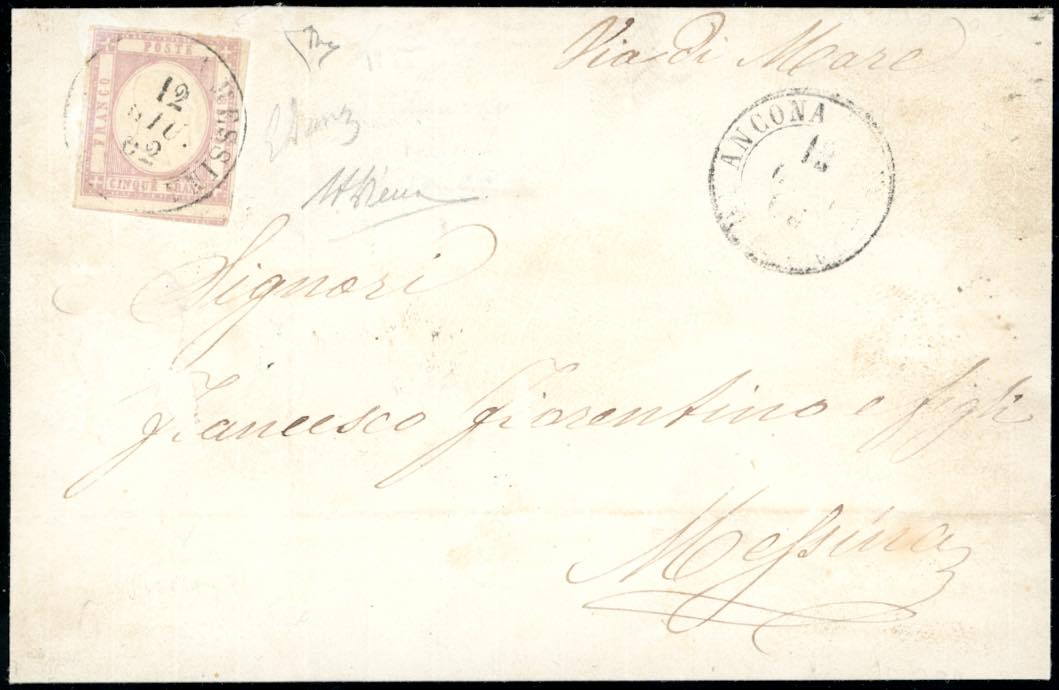 POSTE
FRANCO
CINQUE GRANA
12
GIU.
62
Via di Mare
ANCONA
12
Signori
Francesco Fiorentino e figli
Messina